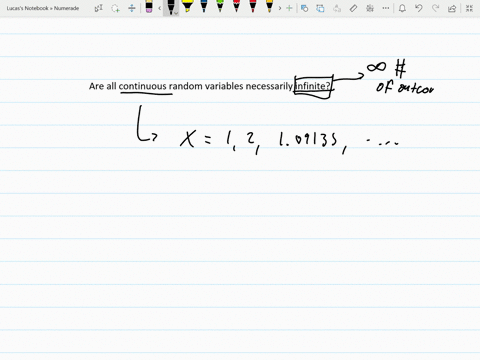 Lucas's Notebook » Numerade
∞ #
of outcom
Are all continuous random variables necessarily infinite?
X = 1, 2, 1.09135, ....